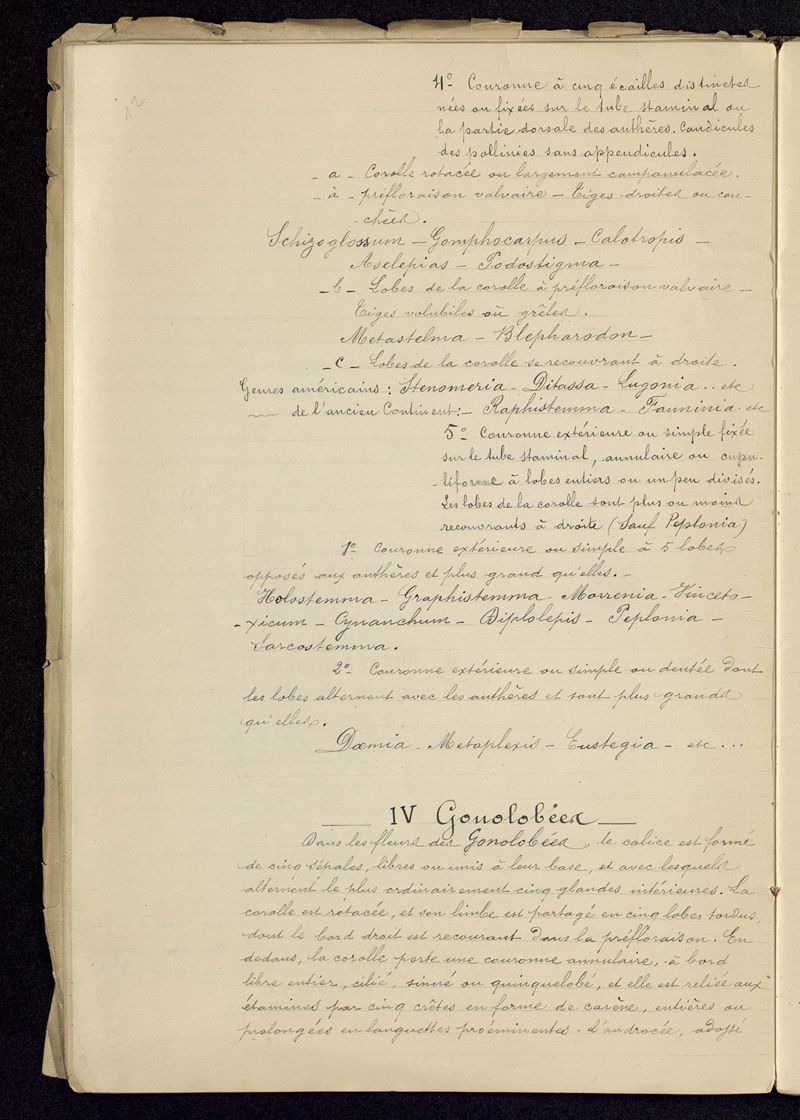 12
4º Couronne à cinq écailles distinctes
nées ou fixées sur le tube staminal ou
la partie dorsale des anthères. Caudicules
des pollinies sans appendicules.
- a - Corolle rotacée ou largement campanulacée.
- à - préfloraison valvaire - Tiges droites ou cou-
- chées.
Schizoglossum - Gomphocarpus - Calotropis -
Asclepias - Podostigma -
- b - Lobes de la corolle à préfloraison valvaire -
Tiges volubiles où grêles.
Metastelma - Blepharodon -
- c - Lobes de la corolle se recouvrant à droite.
Genres américains : Stenomeria - Ditassa - Lugonia .. etc
de l'ancien Continent : - Raphistemma - Fanninia . etc
5º Couronne extérieure ou simple fixée
sur le tube staminal, annulaire ou cupu-
- liforme à lobes entiers ou un peu divisés.
Les lobes de la corolle sont plus ou moins
recouvrants à droite (Sauf Peplonia)
1º Couronne extérieure ou simple à 5 lobes
opposés aux anthères et plus grand qu'elles. -
Holostemma - Graphistemma - Morrenia - Vinceto -
- xicum - Cynanchum - Diplolepis - Peplonia -
Sarcostemma.
2º Couronne extérieure ou simple ou dentée dont
les lobes alternent avec les anthères et sont plus grands
qu'elles.
Dœmia - Metaplexis - Eustegia - etc ...
IV Gonolobées
Dans les fleurs des Gonolobées, le calice est formé
de cinq sépales, libres ou unis à leur base, et avec lesquels
alternent le plus ordinairement cinq glandes intérieures. La
corolle est rotacée, et son limbe est partagé en cinq lobes tordus,
dont le bord droit est recouvrant dans la préfloraison. En
dedans, la corolle porte une couronne annulaire, à bord
libre entier, cilié, sinué ou quinquelobé, et elle est reliée aux
étamines par cinq crêtes en forme de carène, entières ou
prolongées en languettes proéminentes. L'androcée, adossé